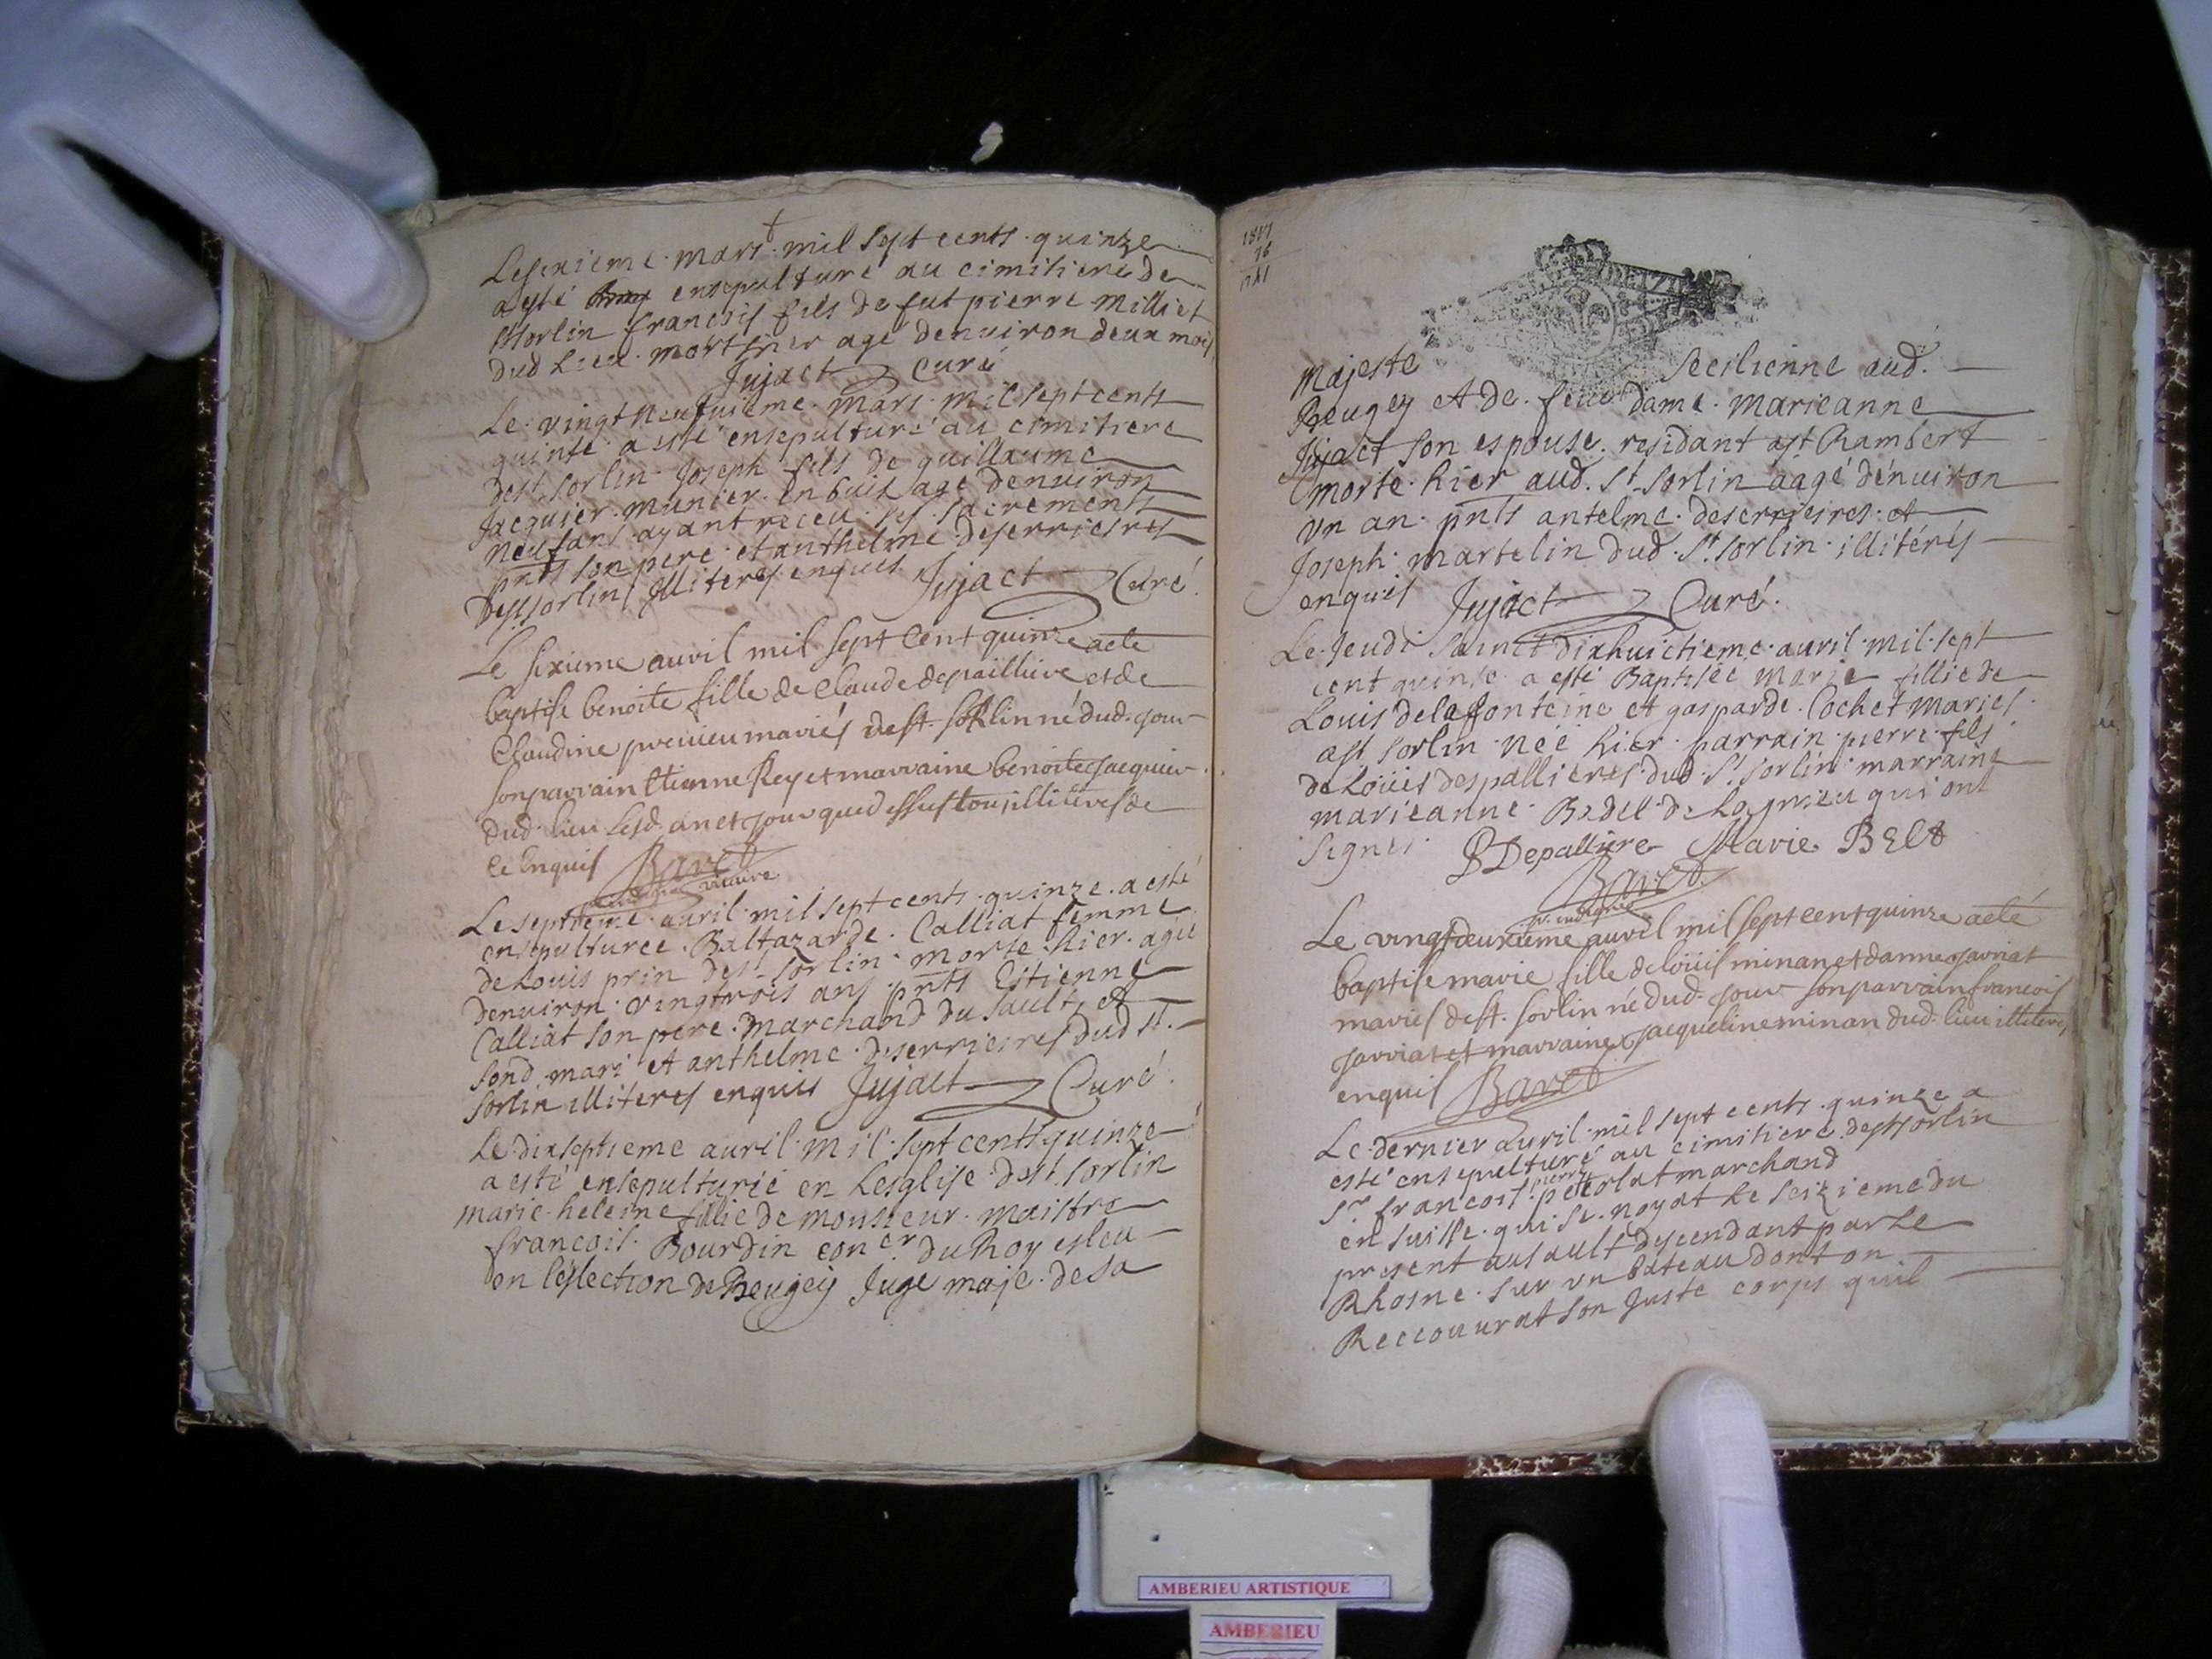 Le sixieme mars mil sept cents quinze
a esté ensepulturé au cimitiere de
st sorlin francois fils de fut pierre Milliet
dud Lieu mort hier agé denuiron deux mois
Jujact Curé
Le vingt neufuieme mars mil sept cents
quinze a esté ensepulturé au cimitiere
de st sorlin Joseph fils de guillaume
Jacquier munier en buis agé denuiron
neuf ans ayant receu ses sacrements
pnts son pere et anthelme deserrieres
de st sorlin Illiteres enquis Jujact Curé.
Le sixieme auril mil sept cent quinze a ete
baptise benoite fille de Claude depailliere et de
Claudine mariés de st. sorlin né dud. jour
son parrain Etienne Rey et marraine benoite Jacquier
dud. lieu lesd. an et jour que dessus tous illiteres de
ce enquis Baret
vicaire
Le septieme auril mil sept cents quinze a esté
ensepulturee Baltazarde Calliat femme
de Louis prin de st sorlin morte hier agee
denuiron vingtrois ans pnts Estienne
Calliat son pere marchand du sault, et
sond. mari et anthelme deserrieres dud st.
sorlin illiteres enquis Jujact Curé.
Le dixseptieme auril mil sept cents quinze
a esté ensepulturée en Lesglise de st. sorlin
marie heleine fillie de monsieur maistre
francois Bourdin coner du Roy esleu
en leslection de Beugey Juge maje de sa
1817
76
1741
Majeste Sicilienne aud.
Beugey et de feue dame marieanne
Jujact son espouse residant a st Rambert
morte hier aud. St sorlin aagé denuiron
un an pnts antelme deserrieres et
Joseph martelin dud. St. sorlin illitérés
enquis Jujact Curé.
Le Jeudi Sainct dixhuictieme auril mil sept
cent quinse a esté Baptisée Marie fillie de
Louis delafonteine et gasparde Cochet mariés
a st sorlin neé hier parrain pierre fils
de Loüis despallieres dud. St sorlin marraine
marieanne Bedel de Lagnieu qui ont
signés P Depalliere Marie BELE
Baret
p. indigne
Le vingtdeuxieme auril mil sept cent quinze a eté
baptise marie fille de loüis minan et danne jarriat
mariés de st. sorlin né dud. jour son parrain francois
jarriat et marraine jacqueline minan dud. lieu illiteres
enquis Baret
Le dernier auril mil sept cents quinze a
esté ensepulturé au cimitiere de st sorlin
Sr francois pierre marchand
en suisse qui se noyat le seizieme du
present au sault descendant par le
Rhosne sur un bateau dont on
Reccouurat son Juste corps quil
AMBERIEU ARTISTIQUE
AMBERIEU